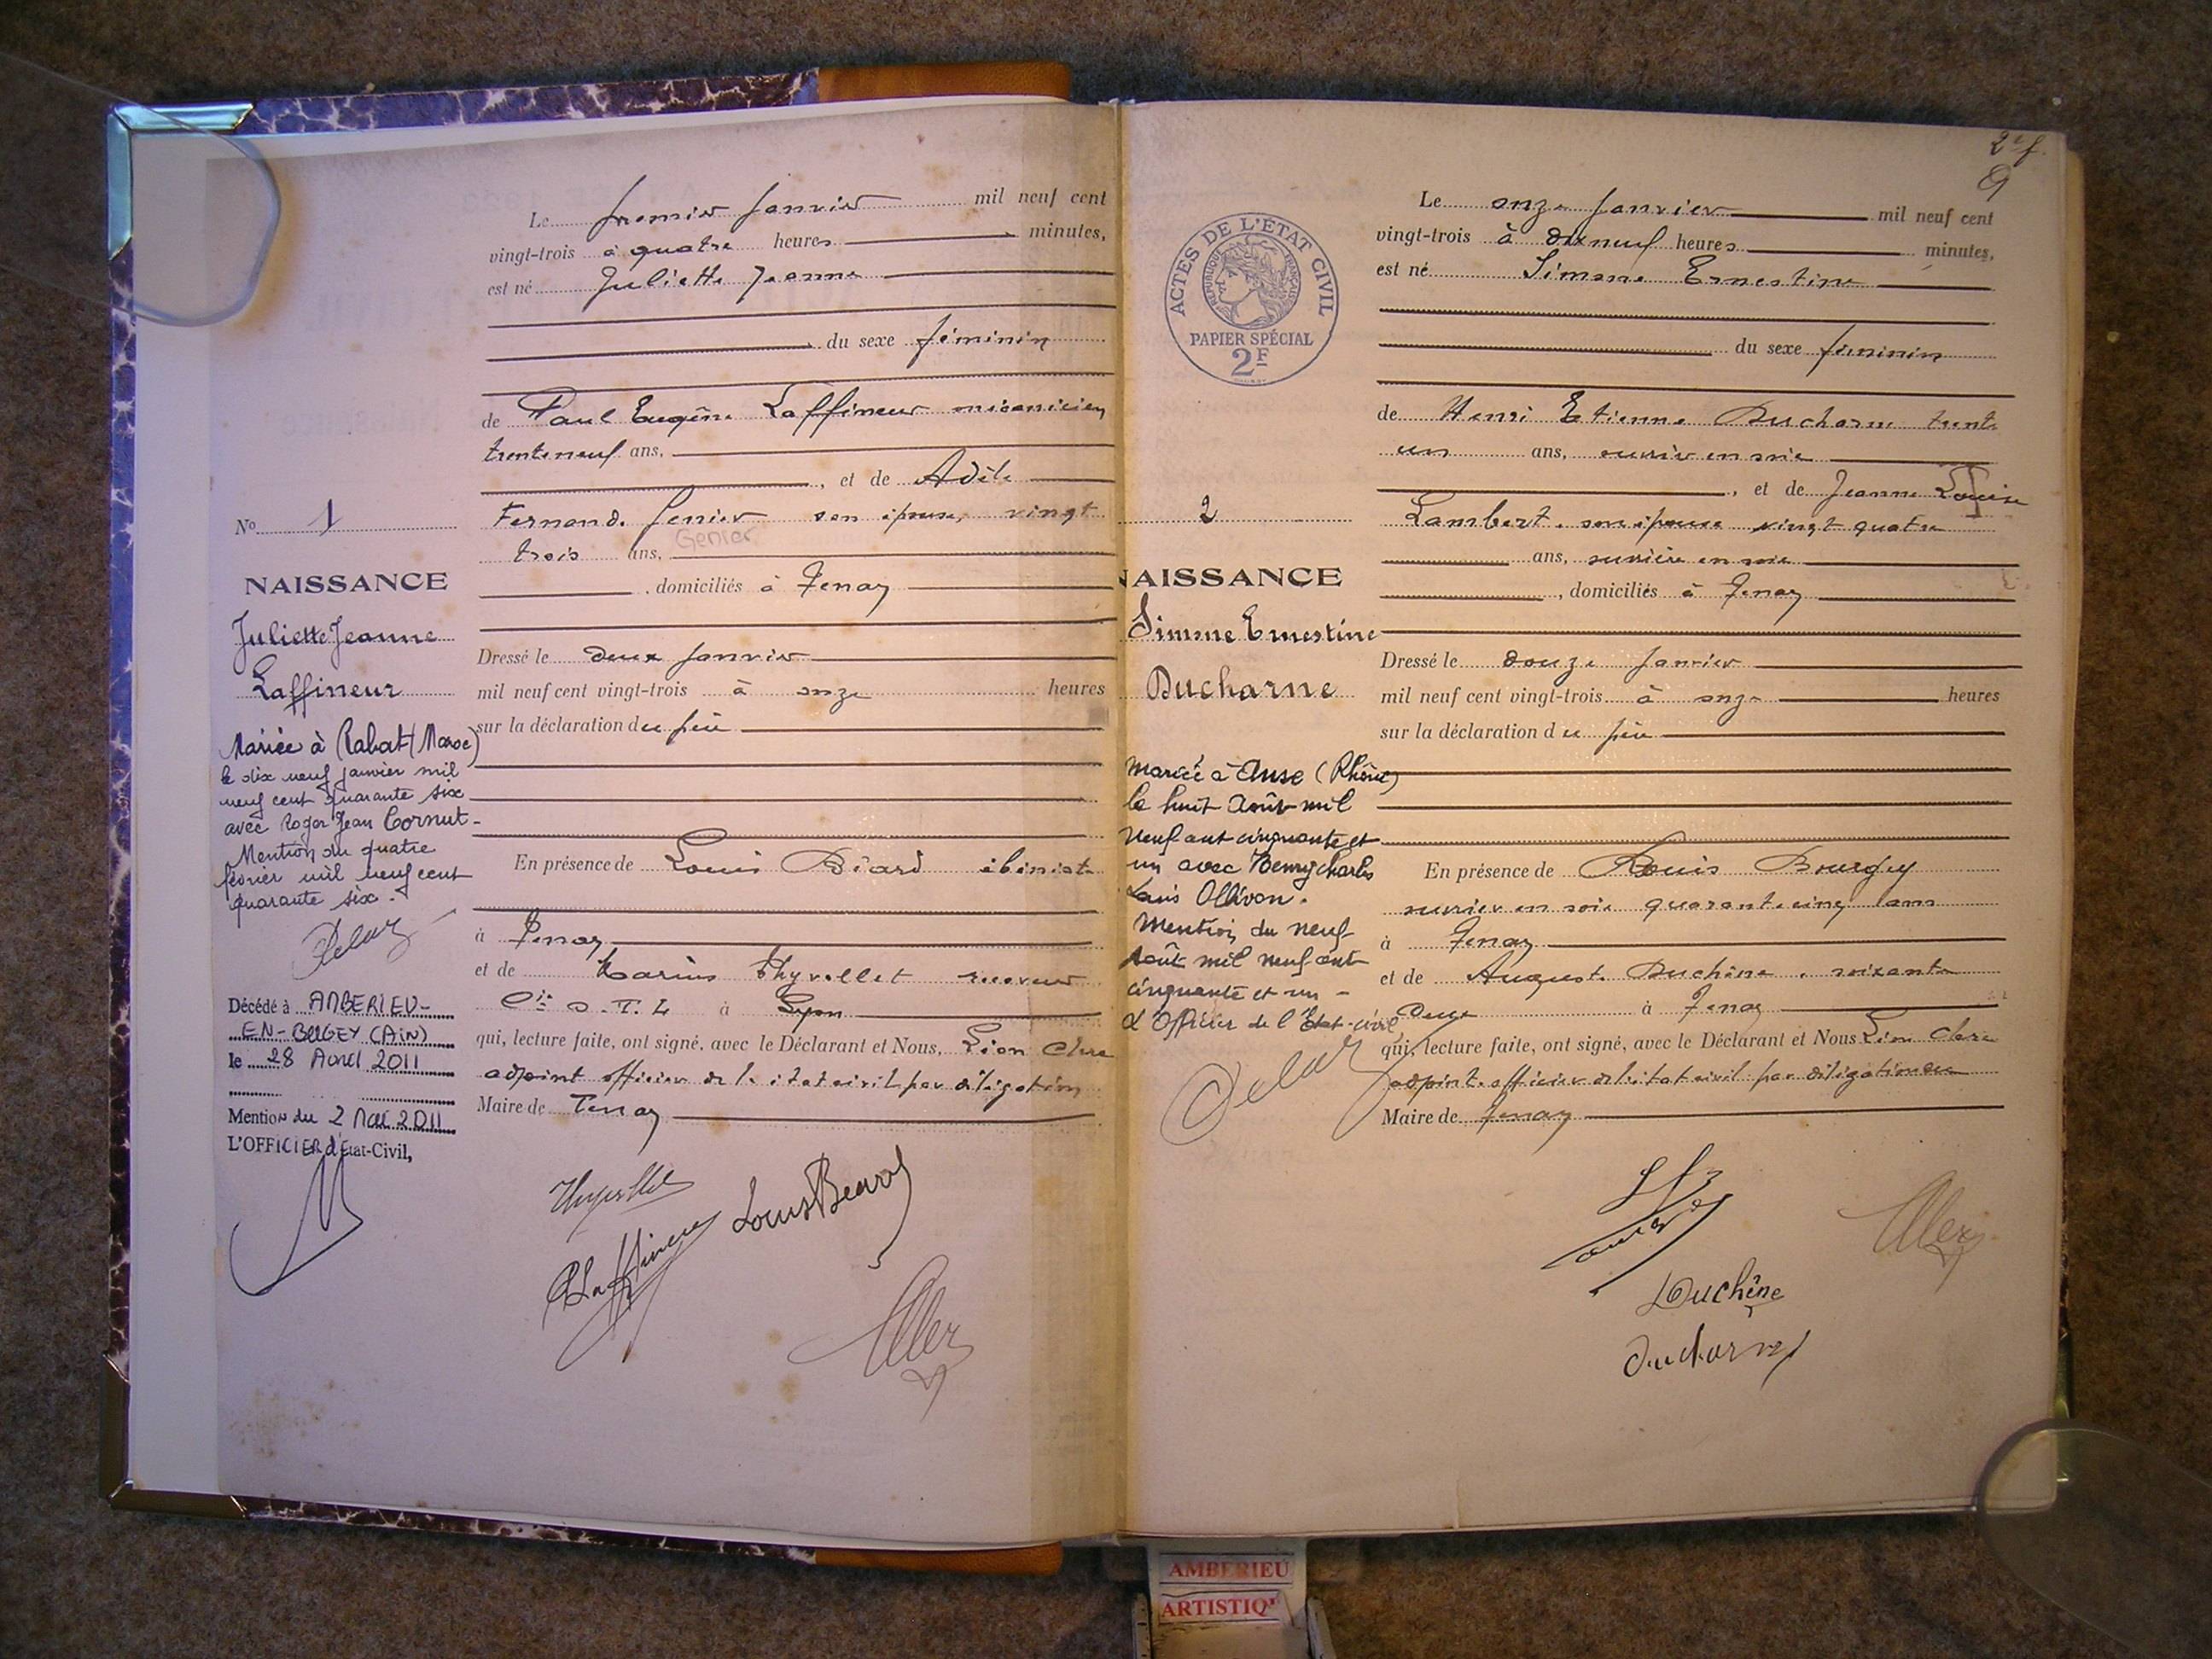 Le premier Janvier mil neuf cent
vingt-trois à quatre heures minutes,
est né Juliette Jeanne
du sexe féminin
de Paul Eugène Laffineur mécanicien
trente neuf ans,
, et de Adèle
Fernande Jenier son épouse, vingt
Genier
trois ans,
, domiciliés à Tenay
Dressé le deux Janvier
mil neuf cent vingt-trois à onze heures
sur la déclaration du père
En présence de Louis Béard ébéniste
à Tenay
et de Marius Thyvollet receveur
Cie O. T. L à Lyon
qui, lecture faite, ont signé, avec le Déclarant et Nous, Léon Clerc
adjoint officier de l'état civil par délégation
Maire de Tenay
No 1
NAISSANCE
Juliette Jeanne
Laffineur
Mariée à Rabat (Maroc)
le dix neuf janvier mil
neuf cent quarante six
avec Roger Jean Cornut-
Mention du quatre
février mil neuf cent
quarante six.
Décédé à AMBERIEU-
EN-BUGEY (AIN)
le 28 Avril 2011
Mention du 2 Mai 2011
L'OFFICIER d'Etat-Civil,
Louis Beard
2e f.
ACTES DE L'ÉTAT CIVIL
RÉPUBLIQUE FRANÇAISE
PAPIER SPÉCIAL
2F
Le onze Janvier mil neuf cent
vingt-trois à dix neuf heures minutes,
est né Simone Ernestine
du sexe féminin
de Henri Etienne Ducharne trente
un ans, ouvrier en soie
, et de Jeanne Louise
Lambert son épouse vingt quatre
ans, ouvrière en soie
, domiciliés à Tenay
Dressé le douze Janvier
mil neuf cent vingt-trois à onze heures
sur la déclaration du père
En présence de Louis Bourgey
ouvrier en soie quarante cinq ans
à Tenay
et de Auguste Duchêne, soixante
deux à Tenay
qui, lecture faite, ont signé, avec le Déclarant et Nous Léon Clerc
adjoint officier de l'état civil par délégation du
Maire de Tenay
2
NAISSANCE
Simone Ernestine
Ducharne
Mariée à Anse (Rhône)
le huit Août mil
neuf cent cinquante et
un avec Henry Charles
Louis Ollivon.
Mention du neuf
Août mil neuf cent
cinquante et un -
L'Officier de l'Etat-civil
Duchêne
Ducharne
AMBERIEU
ARTISTIQ